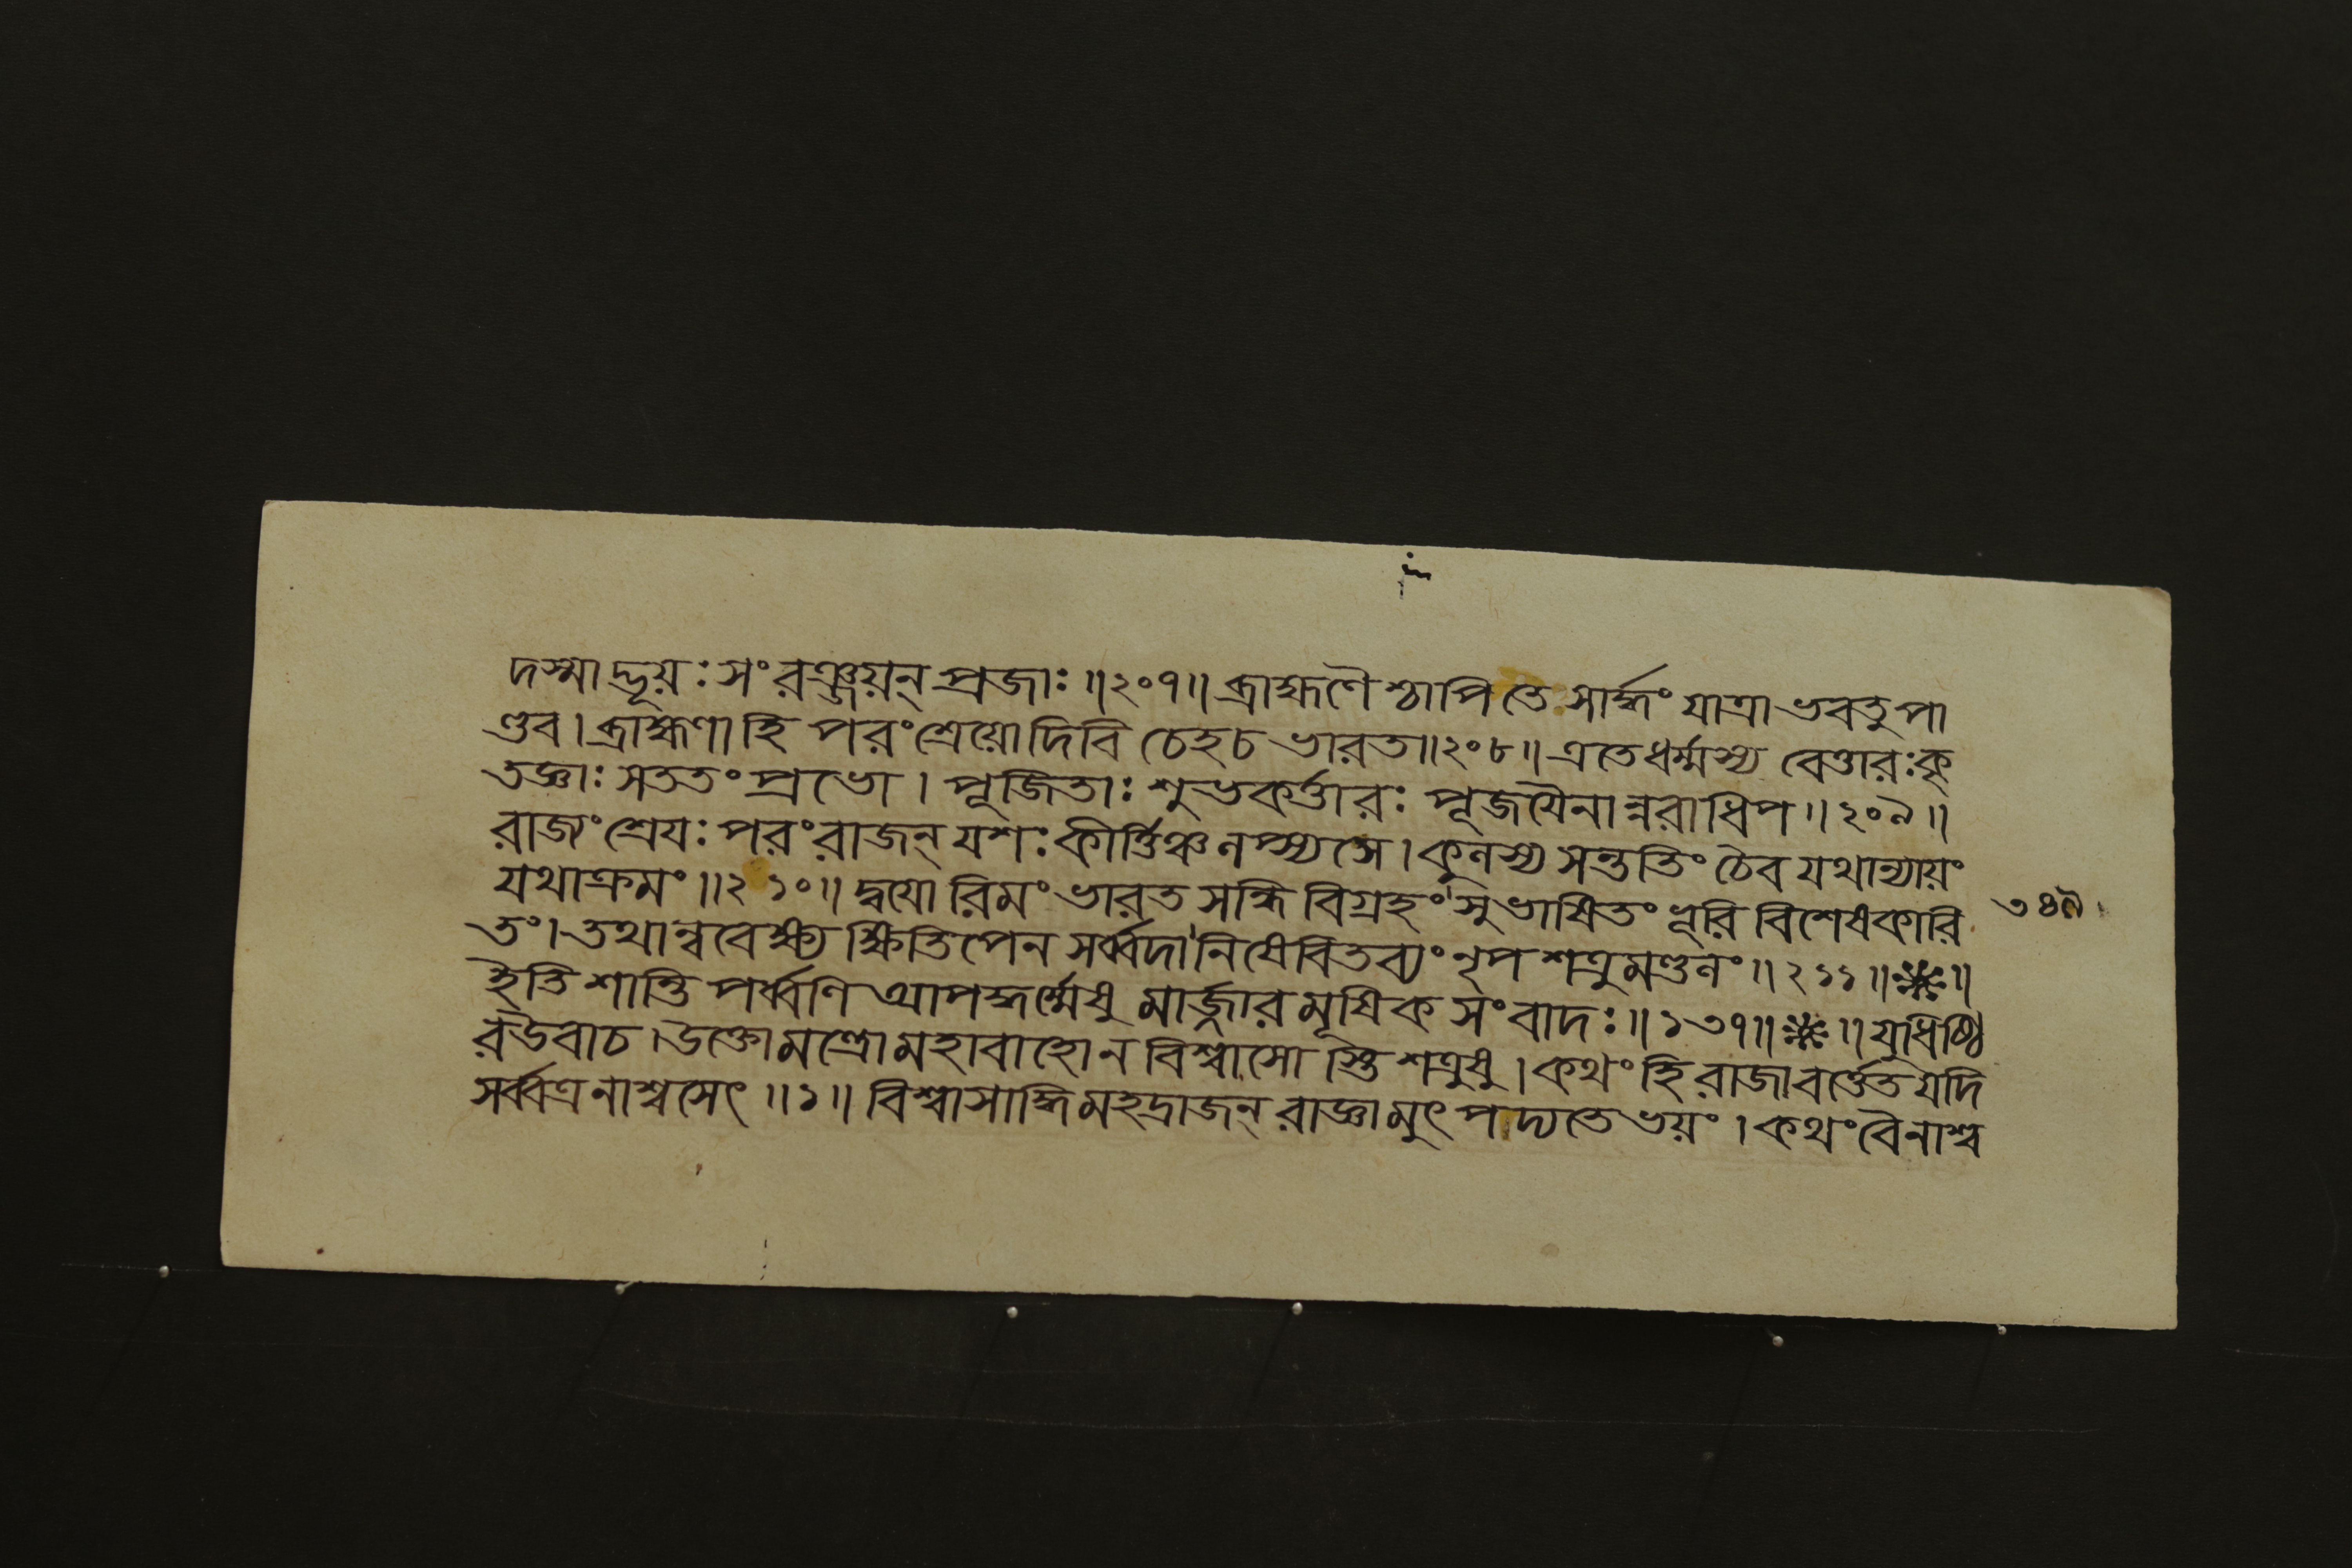 দস্মাদ্ভূয়ঃ সংরঞ্জয়ন্ প্রজাঃ ॥২০৭॥ ব্রাহ্মণৈশ্চাপি তে সার্দ্ধং যাত্রা ভবতু পা
ণ্ডব। ব্রাহ্মণা হি পরং শ্রেয়ো দিবি চেহ চ ভারত॥২০৮॥ এতে ধর্ম্মস্য বেত্তারঃ কৃ
তজ্ঞাঃ সততং প্রভো। পূজিতাঃ শুভকর্ত্তারঃ পূজযৈনান্নরাধিপ॥২০৯॥
রাজ্যং শ্রেযঃ পরং রাজন্ যশঃ কীর্ত্তিঞ্চ লপ্স্যসে। কুলস্য সন্ততিং চৈব যথান্যায়ং
যথাক্রমং॥২১০॥ দ্বযোরিমং ভারত সন্ধিবিগ্রহং সুভাষিতং বুদ্ধি বিশেষকারি
তং। তথান্ববেক্ষ্য ক্ষিতিপেন সর্ব্বদা নিষেবিতব্যং নৃপ শত্রুমণ্ডলং॥২১১॥❋॥
ইতি শান্তি পর্ব্বণি আপদ্ধর্ম্মেষু মার্জ্জার মূষিক সংবাদঃ॥১৩৭॥❋॥ যুধিষ্ঠি
র উবাচ। উক্তো মন্ত্রো মহাবাহো ন বিশ্বাসো স্তি শত্রুষু। কথং হি রাজা বর্ত্তেত যদি
সর্ব্বত্র নাশ্বসেৎ॥১॥ বিশ্বাসাদ্ধি মহদ্রাজন্ রাজ্ঞামুৎপদ্যতে ভয়ং। কথং বৈ নাশ্ব
৩৪৯